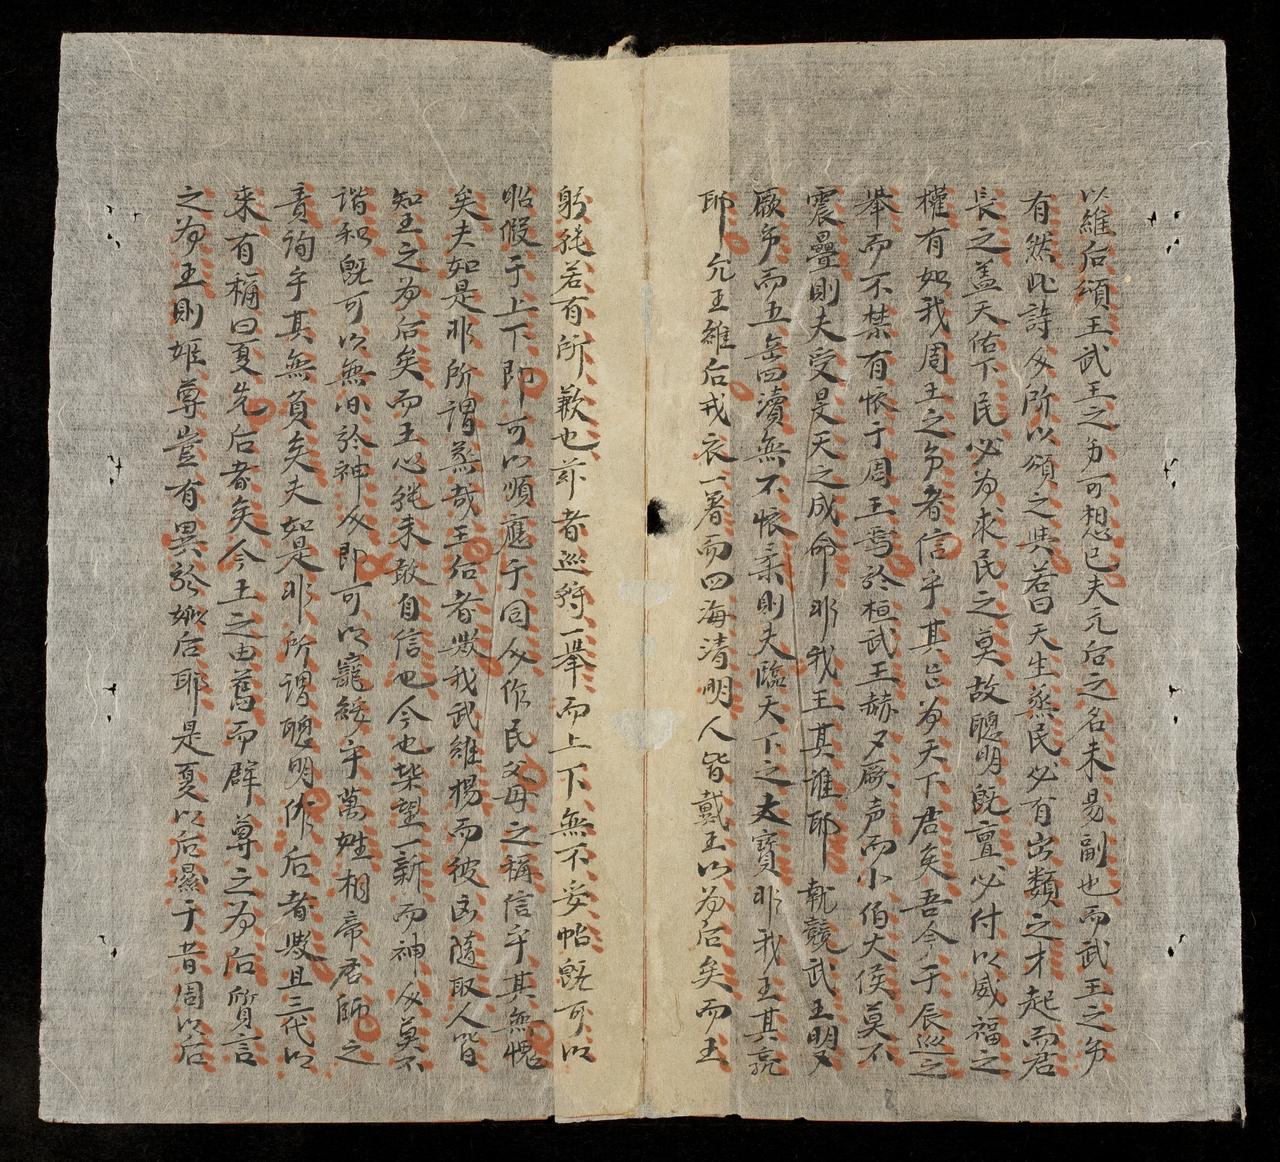 以維后頌王武王之為可想已夫元后之名未易副也而武王之為
有然此詩人所以頌之與若曰天生烝民必有出類之才起而君
長之蓋天佑下民必為求民之莫故聰明既亶必付以威福之
權有如我周王之為者信乎其足為天下君矣吾今于辰巡之
舉而不禁有懷于周王焉於桓武王赫々厥声而小伯大侯莫不
震疊則夫受是天之成命非我王其誰耶執競武王明々
厥為而五岳四瀆無不懷柔則夫臨天下之大寶非我王其孰
耶允王維后戎衣一着而四海清明人皆戴王以為后矣而王
躬猶若有所歉也茲者巡狩一舉而上下無不妥帖既可以
昭假于上下即可以順應于同人作民父母之稱信乎其無愧
矣夫如是非所謂烝哉王后者歟我武維揚而彼凶隨取人皆
知王之為后矣而王心猶未敢自信也今也柴望一新而神人莫不
諧和既可以無冰於神人即可以寵綏乎萬姓相帝君師之
責詢乎其無負矣夫如是非所謂聰明作后者歟且三代以
來有稱曰夏先后者矣今王之由舊而群尊之為后質言
之為王則姬尊豈有異於姒后耶是夏以后顯于昔周以后